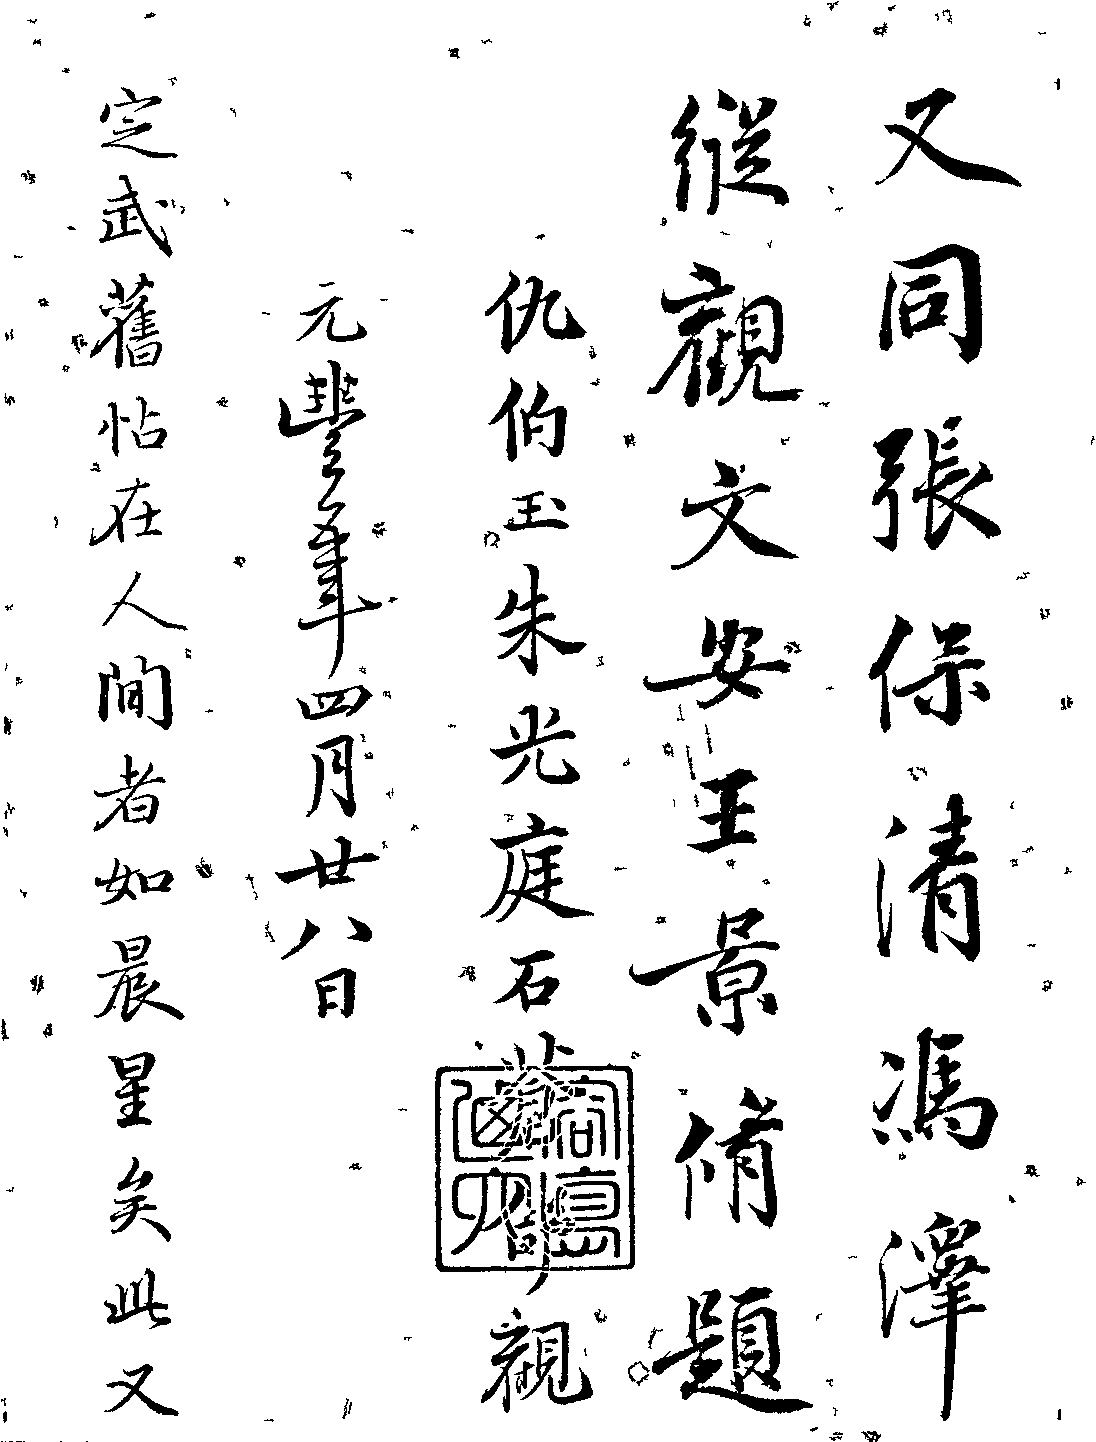 又同張保清馮澤
縱觀文安王景脩題
仇伯玉朱光庭石蒼舒觀
元豐五年四月廿八日
定武舊帖在人間者如晨星矣此又